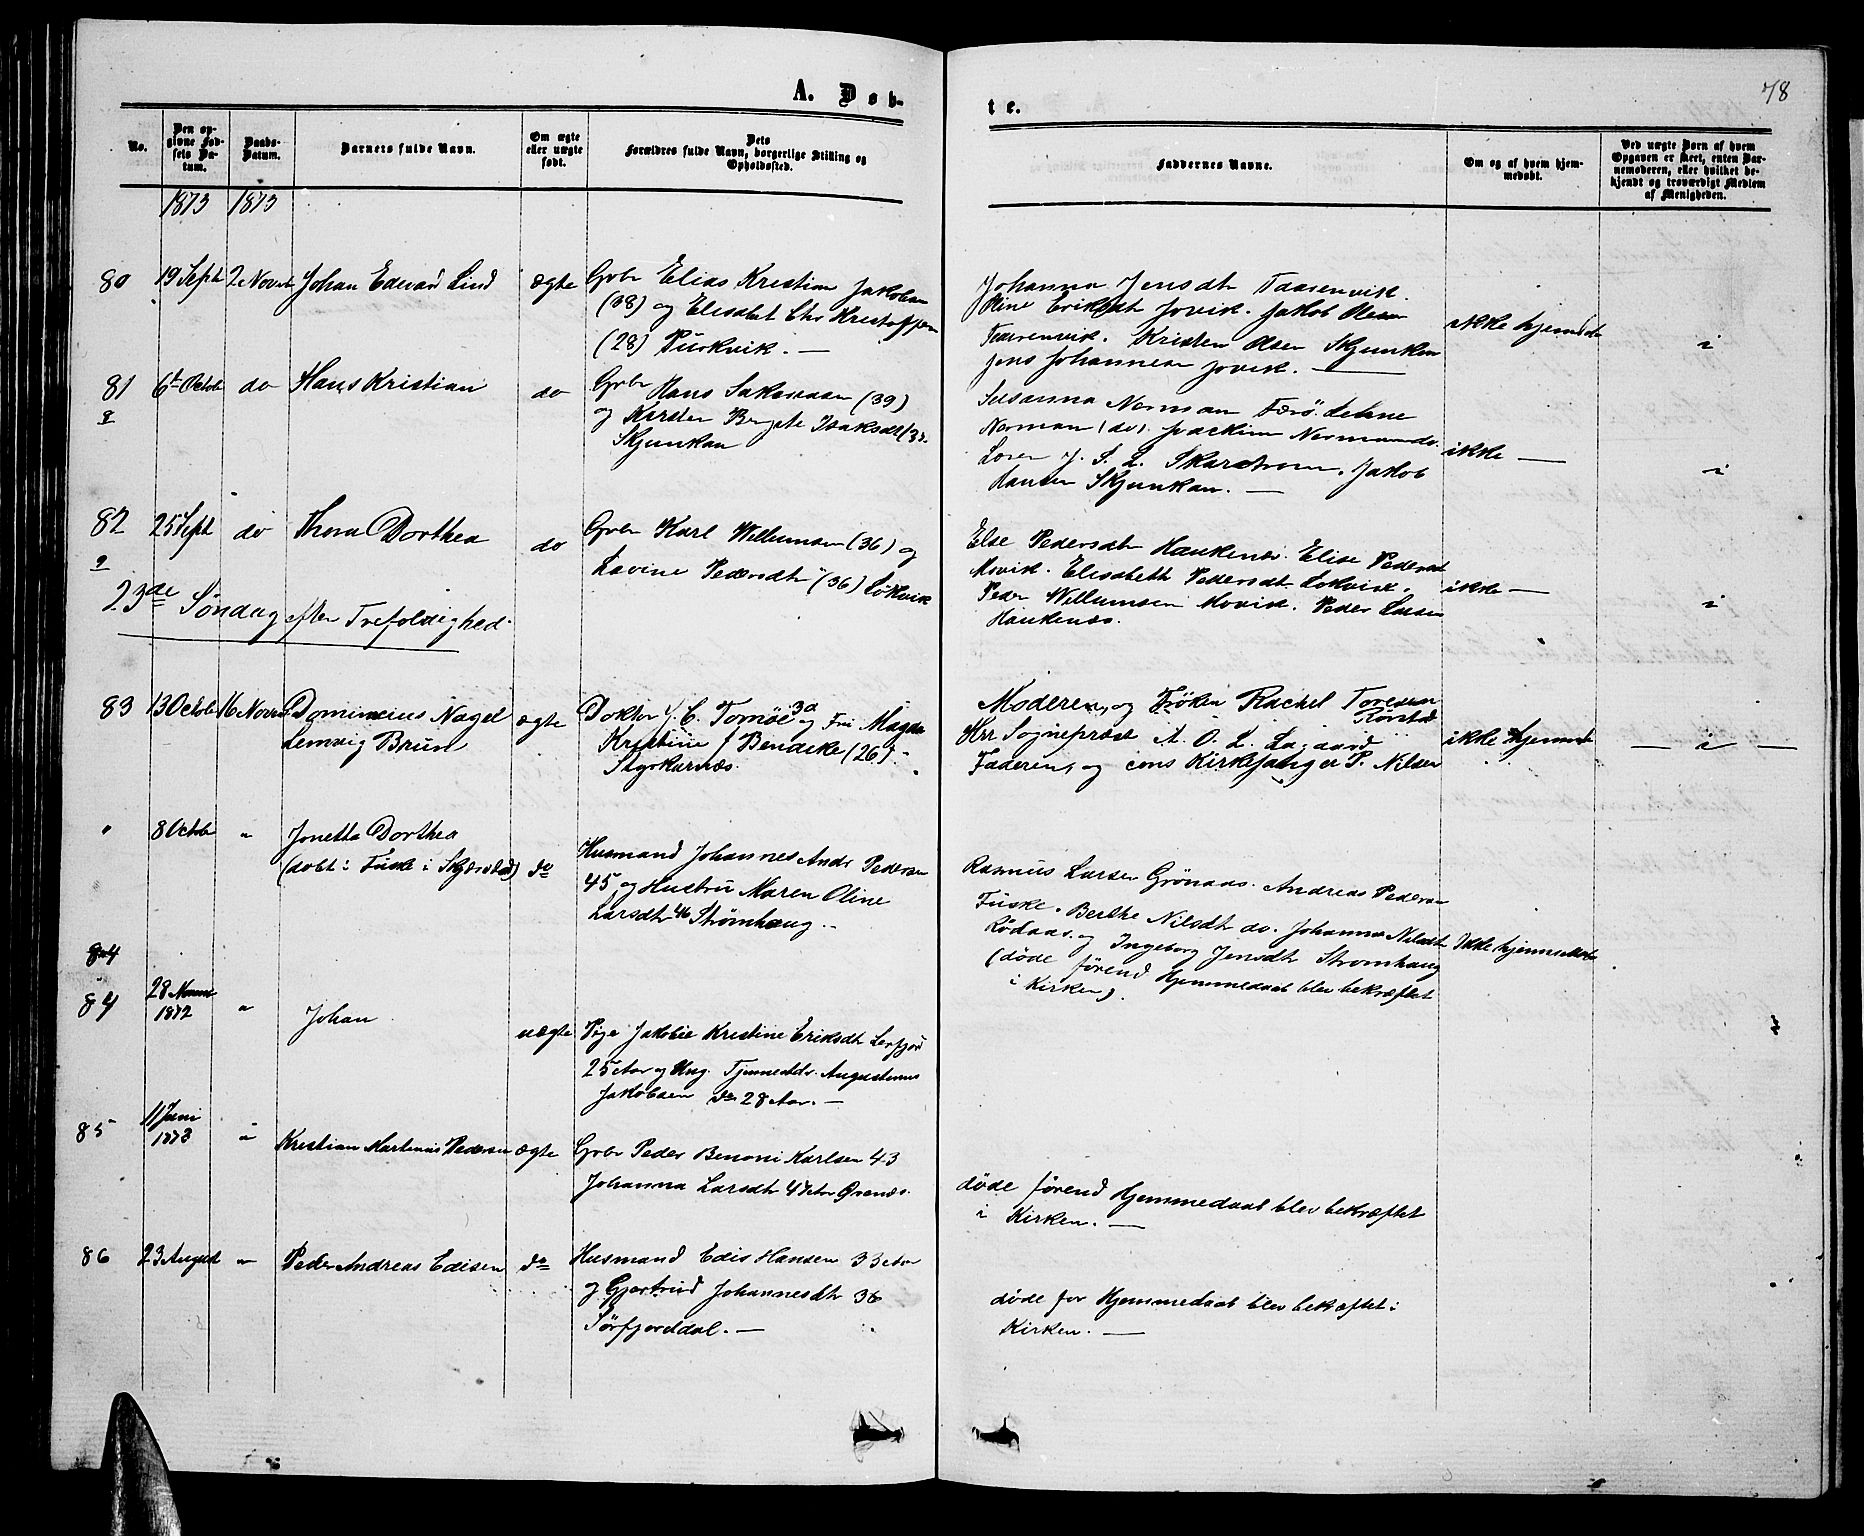 78
A. Døb-
te.
No.
Den op-
givne Fød-
sels Da-
tum.
Daabs-
Datum.
Barnets fulde Navn.
Om ægte
eller uægte
født.
Dets
Forældres fulde Navn, borgerlige Stilling og
Opholdssted.
Faddernes Navne.
Om og af hvem hjem-
medøbt.
Ved uægte Børn af hvem
Opgaven er skeet, enten Bar-
nemoderen, eller hvilket be-
kjendt og troværdigt Medlem
af Menigheden.
1873 1873
80 19 Sept 2 Novb Johan Edevard Lind ægte Gbr Elias Kristian Jakobsen
(38) og Elisabet Chr Kristoffersen
(28) Purkvik. —
Johanna Jensdt Taarenvik.
Oline Eriksdt Jovik. Jakob Olsen
Taarenvik. Kristen Olsen Skjunken
Jens Johannesen Jovik. —
ikke hjemdøbt
81 6te Octob do Hans Kristian do Gbr Hans Sakariasen (39)
og Kirsten Bergete Isaksdt (3
Skjunkan
Susanna Norman Færø. Lehne
Norman (do). Joachim Norman do.
Loren J. S. L. Skarstrom. Jakob
Hansen Skjunkan. —
ikke —
82 25 Sept do Thora Dorthea do Gbr Karl Willumsen (36) og
Lavine Pedersdt (36) Løkvik
Else Pedersdt Haukenæs. Elise Pedersdt
Movik. Elisabeth Pedersdt Løkvik.
Peder Willumsen Movik. Peder Larsen
Haukenæs.
ikke —
23de Søndag efter Trefoldighed.
83 13 Octob 16 Novb Dominicus Nagel
Lemvig Brun ægte Doktor J. C. Tornöe 30 og Fru Magda
Kristine f Bendeke (26)
Styrkesnæs.
Moderen, og Frøken Rachel Toresen
Rørstad
Hrr Sognepræst A. O. L. Lagaard
Faderen, og cons Kirkesanger P. Nilsen
ikke hjemmd — i —
" 8 Octob " Jonetta Dorthea
(døbt i Fuske i Skjerstad) do Husmand Johannes Andr Pedersen
45 og Hustru Maren Oline
Larsdt 46 Strømhaug.
Rasmus Larsen Grønaas. Andreas Pedersen
Fuske. Berthe Nilsdt do. Johanna Nilsdt
Rødaas. og Ingeborg Jensdt Strømhaug
(døde førend Hjemmedaab blev bekræftet
i Kirken).
Ikke hjemmedøbt
84
84 28
1872 " Johan uægte Pige Jakobie Kristine Eriksdt Leifjord
25 Aar og Ung. Tjenestdr. Augustinus
Jakobsen do 28 Aar. —
85 11 Juni
1873 " Kristian Martinus Pedersen ægte Gbr Peder Benoni Karlsen 43
Johanna Larsdt 47 Aar Ørenæs.
døde førend Hjemmedaab blev bekræftet
i Kirken. —
86 23 August " Peder Andreas Edisen do Husmand Edis Hansen 33 Aar
og Gjertrud Johannesdt 36
Sörfjorddal. —
døde før Hjemmedaab blev bekæftet i
Kirken. —